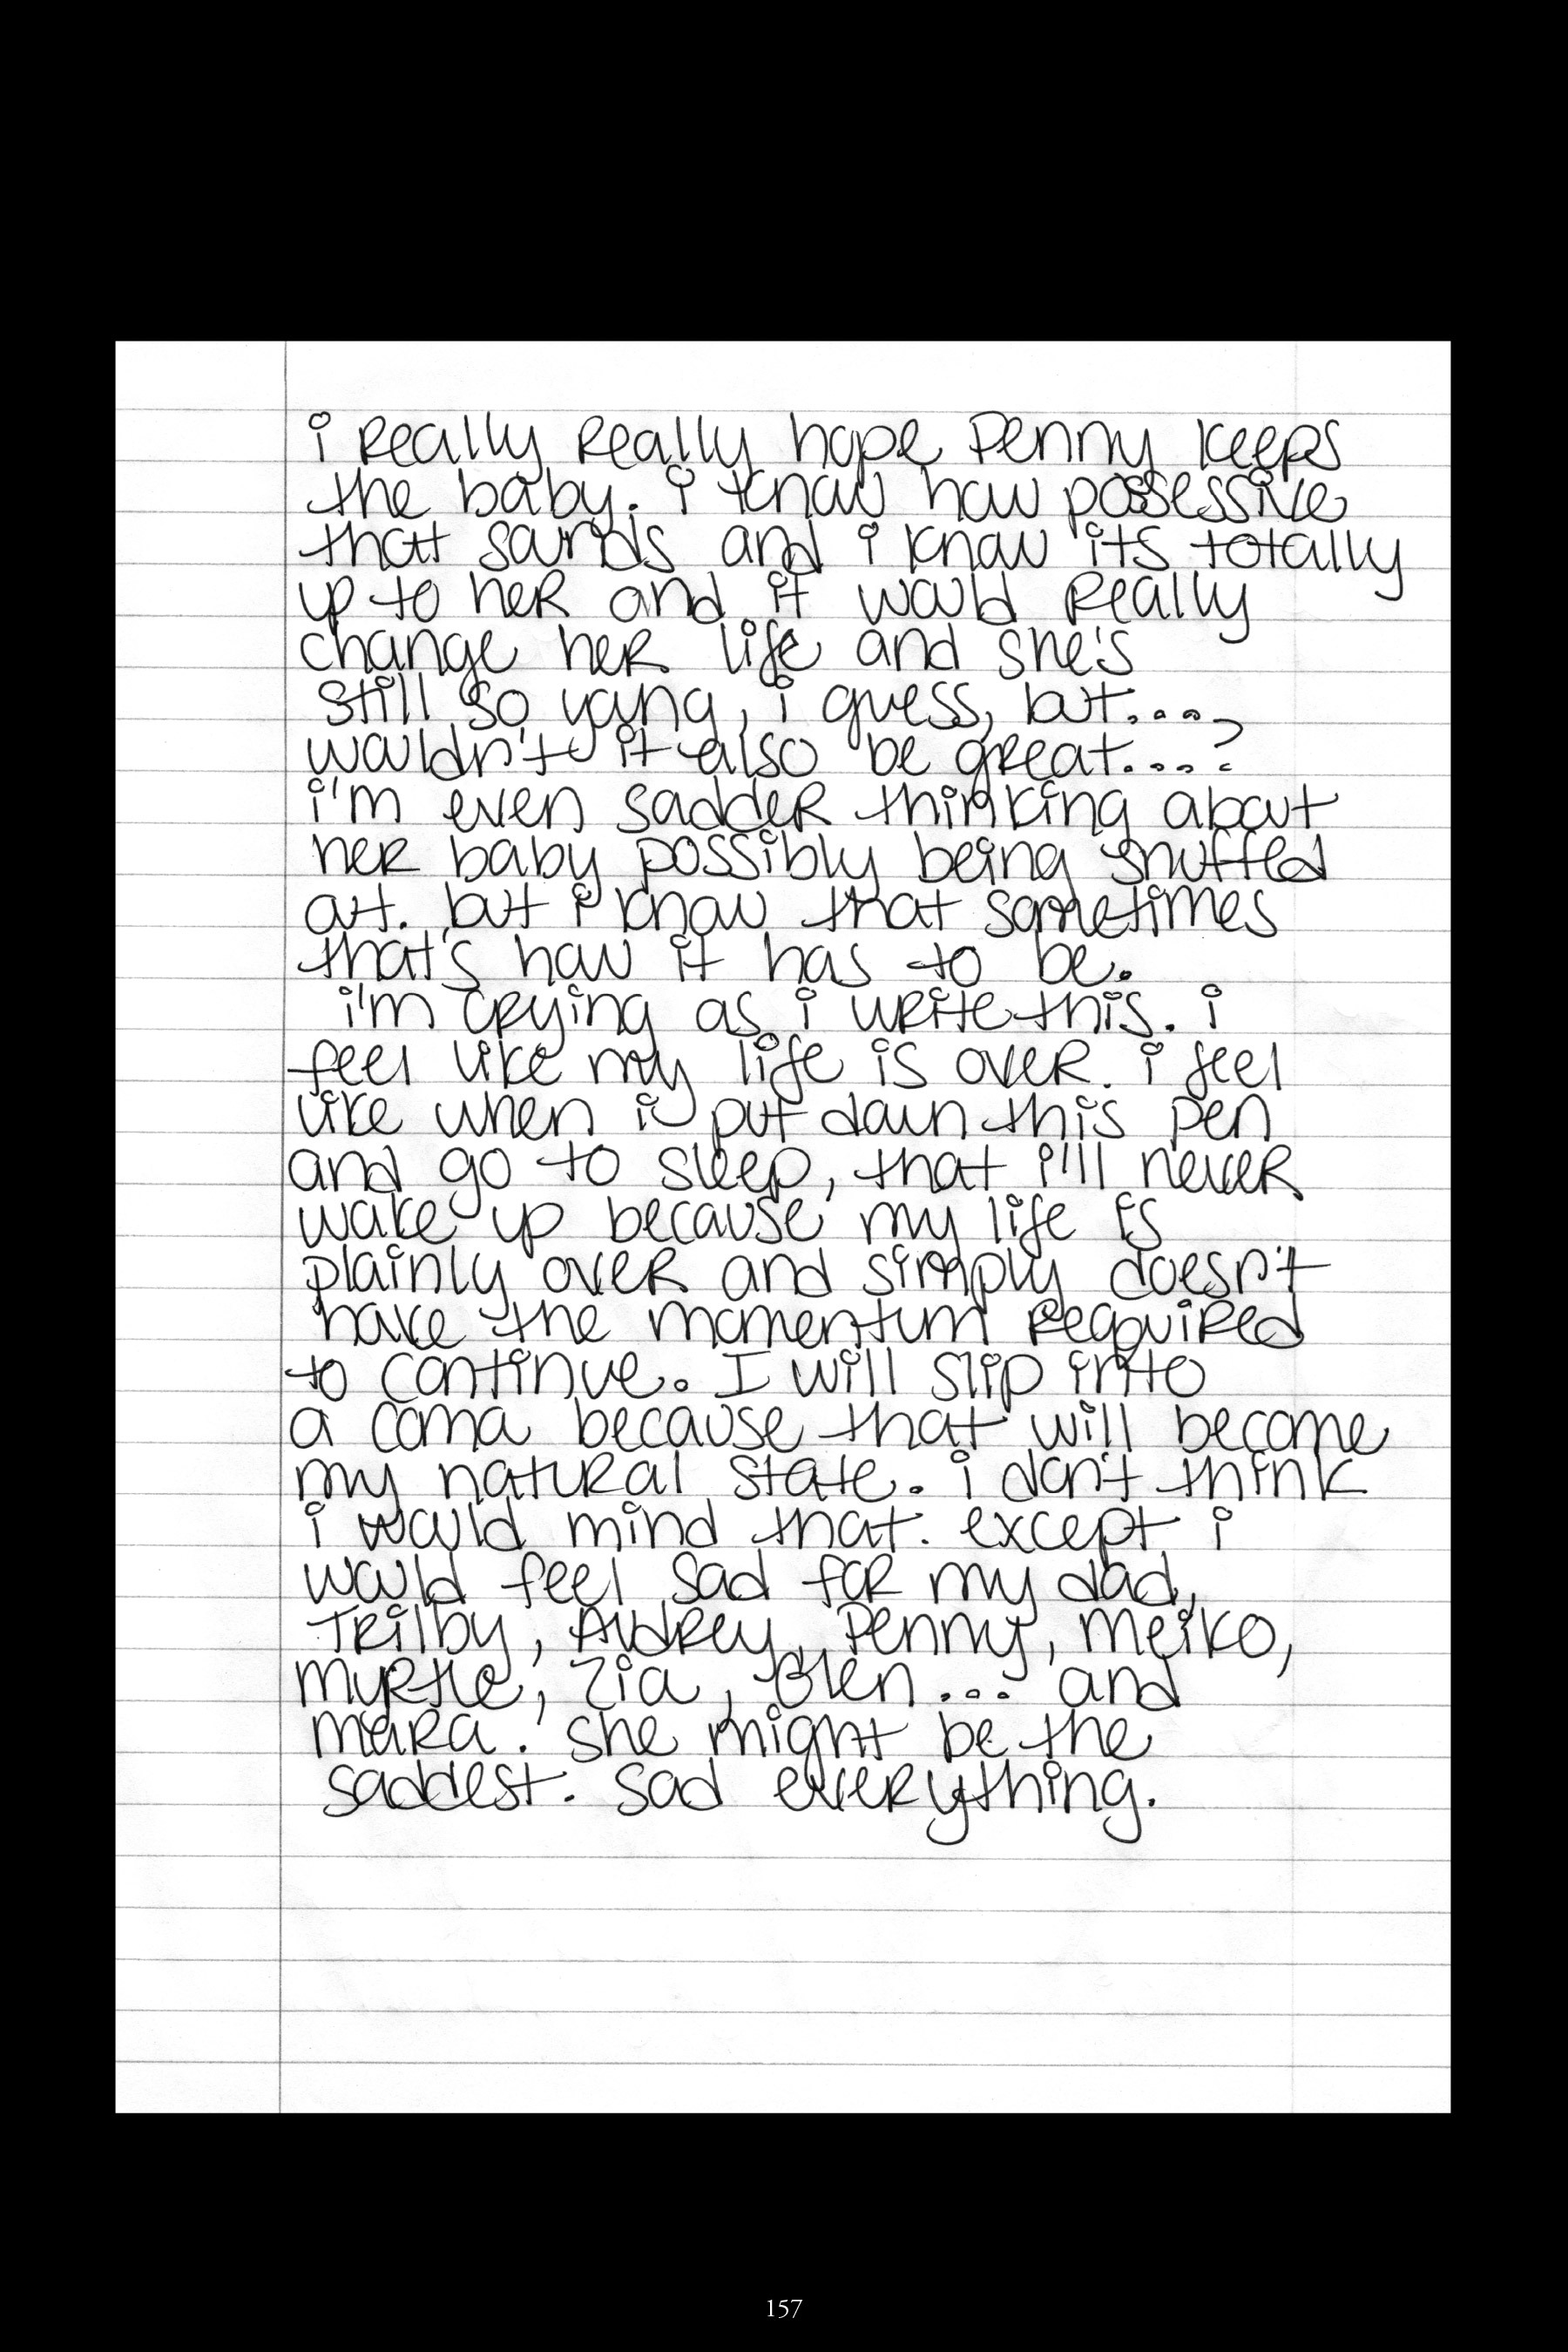 i really really hope Penny keeps
the baby. i know how possessive
that sounds and i know its totally
up to her and it would really
change her life and she's
still so young, i guess, but....
wouldn't it also be great....?
i'm even sadder thinking about
her baby possibly being snuffed
out. but i know that sometimes
that's how it has to be.
i'm crying as i write this. i
feel like my life is over. i feel
like when i put down this pen
and go to sleep, that i'll never
wake up because my life is
plainly over and simply doesn't
have the momentum required
to continue. I will slip into
a coma because that will become
my natural state. i don't think
i would mind that. except i
would feel sad for my dad,
Trilby, Audrey, Penny, Meiko,
Myrtle, Zia, Glen... and
mara. she might be the
saddest. sad everything.
157